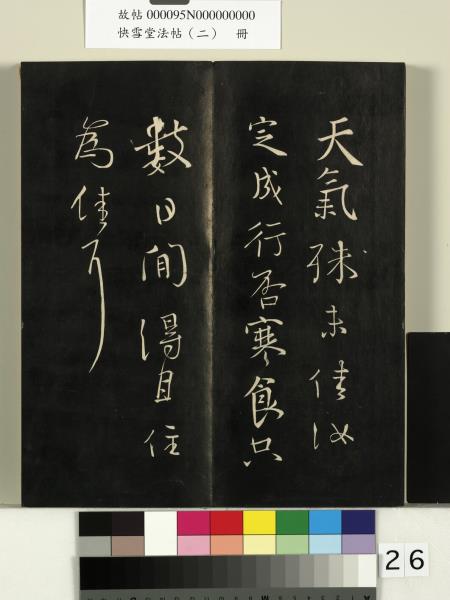 故帖 000095N000000000
快雪堂法帖（二） 冊
天氣殊未佳汝
定成行否寒食只
數日間得且住
為佳耳
26